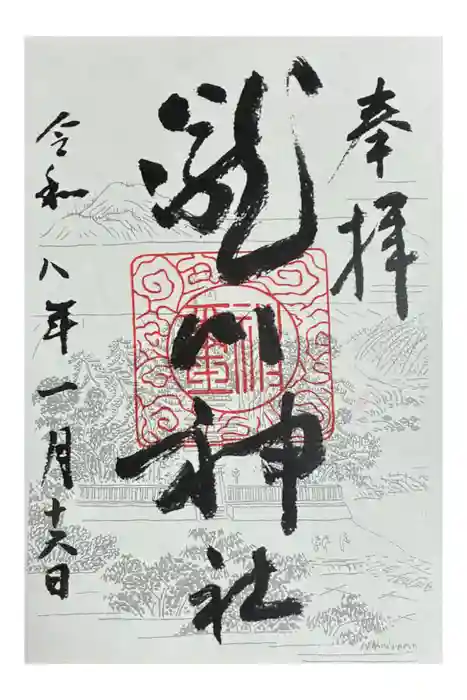 奉拝
瀧川神社
令和八年一月十六日